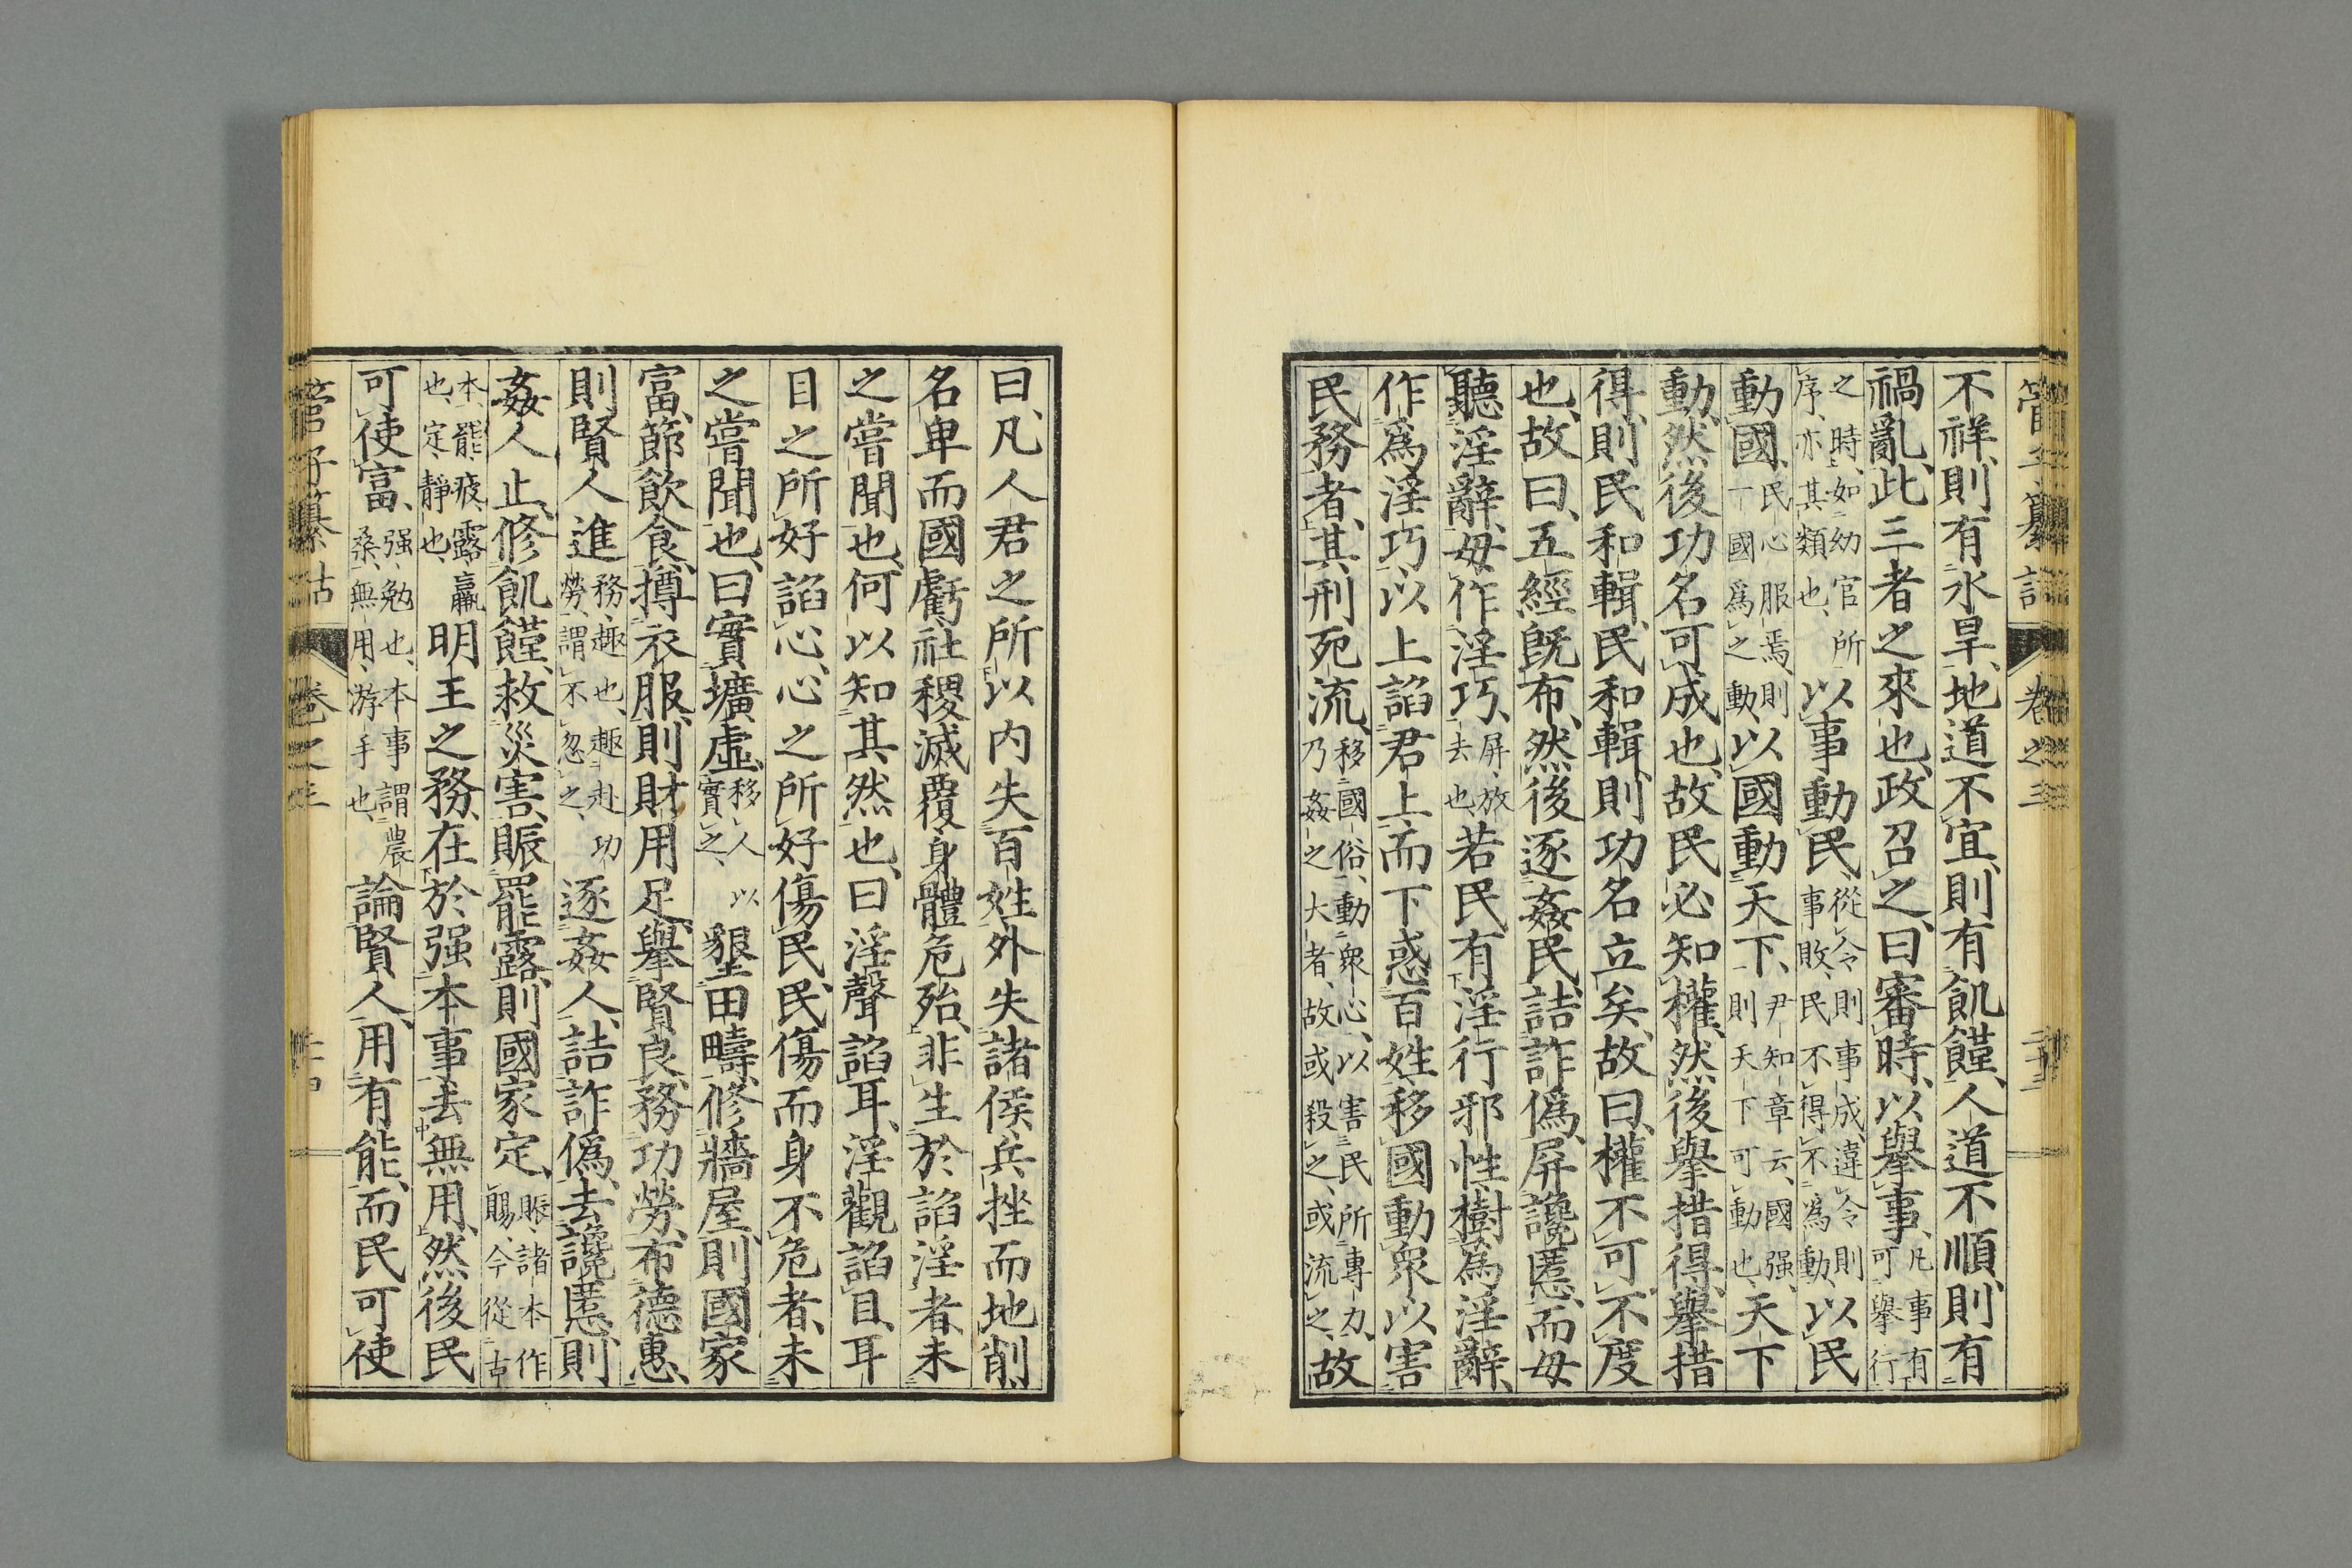 不祥、則有水旱、地道不宜、則有飢饉、人道不順、則有
禍亂、此三者之來也、政召之、曰審時、以擧事、凡事有可擧行
之時、如幼官所序、亦其類也、以事動民、從令則事成、違令則事敗、民不得不爲動、以民
動國、民心服焉、則一國爲之動、以國動天下、尹知章云、國强、則天下可動也、天下
動、然後功名可成也、故民必知權、然後擧措得、擧措
得、則民和輯、民和輯、則功名立矣、故曰、權不可不度
也、故曰、五經既布、然後逐姦民、詰詐僞、屏讒慝、而毋
聽淫辭、毋作淫巧、屏、放去也、若民有淫行邪性、樹爲淫辭、
作爲淫巧、以上諂君上、而下惑百姓、移國動衆、以害
民務者、其刑死流、移國俗、動衆心、以害民所專力、乃姦之大者、故或殺之、或流之、故
曰、凡人君之所以内失百姓、外失諸侯、兵挫而地削、
名卑而國虧、社稷滅覆、身體危殆、非生於諂淫者、未
之嘗聞也、何以知其然也、曰淫聲諂耳、淫觀諂目、耳
目之所好諂心、心之所好傷民、民傷而身不危者、未
之嘗聞也、曰實壙虛、移人以實之、墾田疇、修牆屋、則國家
富、節飮食、撙衣服、則財用足、擧賢良、務功勞、布德惠、
則賢人進、務、趣也、趣赴功勞、謂不忽之、逐姦人、詰詐僞、去讒慝、則
姦人止、修飢饉、救災害、賑罷露、則國家定、賑、諸本作賜、今從古
本、罷、疲、露、羸也、定、靜也、明王之務、在於强本事、去無用、然後民
可使富、强、勉也、本事、謂農桑、無用、游手也、論賢人、用有能、而民可使
管子纂詁　卷之三